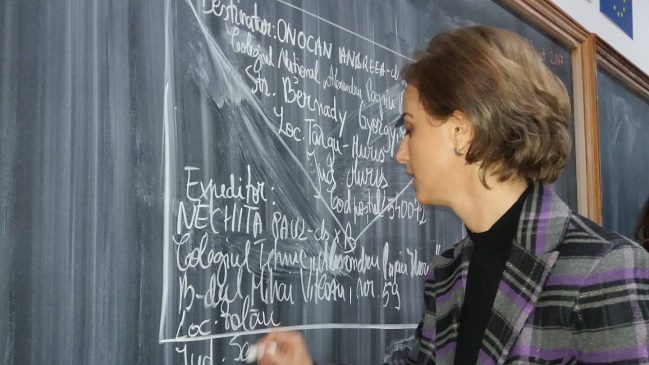 Destinatar: ONOCAN ANDREEA-
Colegiul Național „Alexandru Papiu
Str. Bernady György, nr.
Loc. Târgu-Mureș
Jud. Mureș
Cod poștal 540072
Expeditor:
NECHITA PAUL- cls X
Colegiul Tehnic „Alexandru Papiu
B-dul Mihai Viteazu, nr. 59
Loc.
Jud.